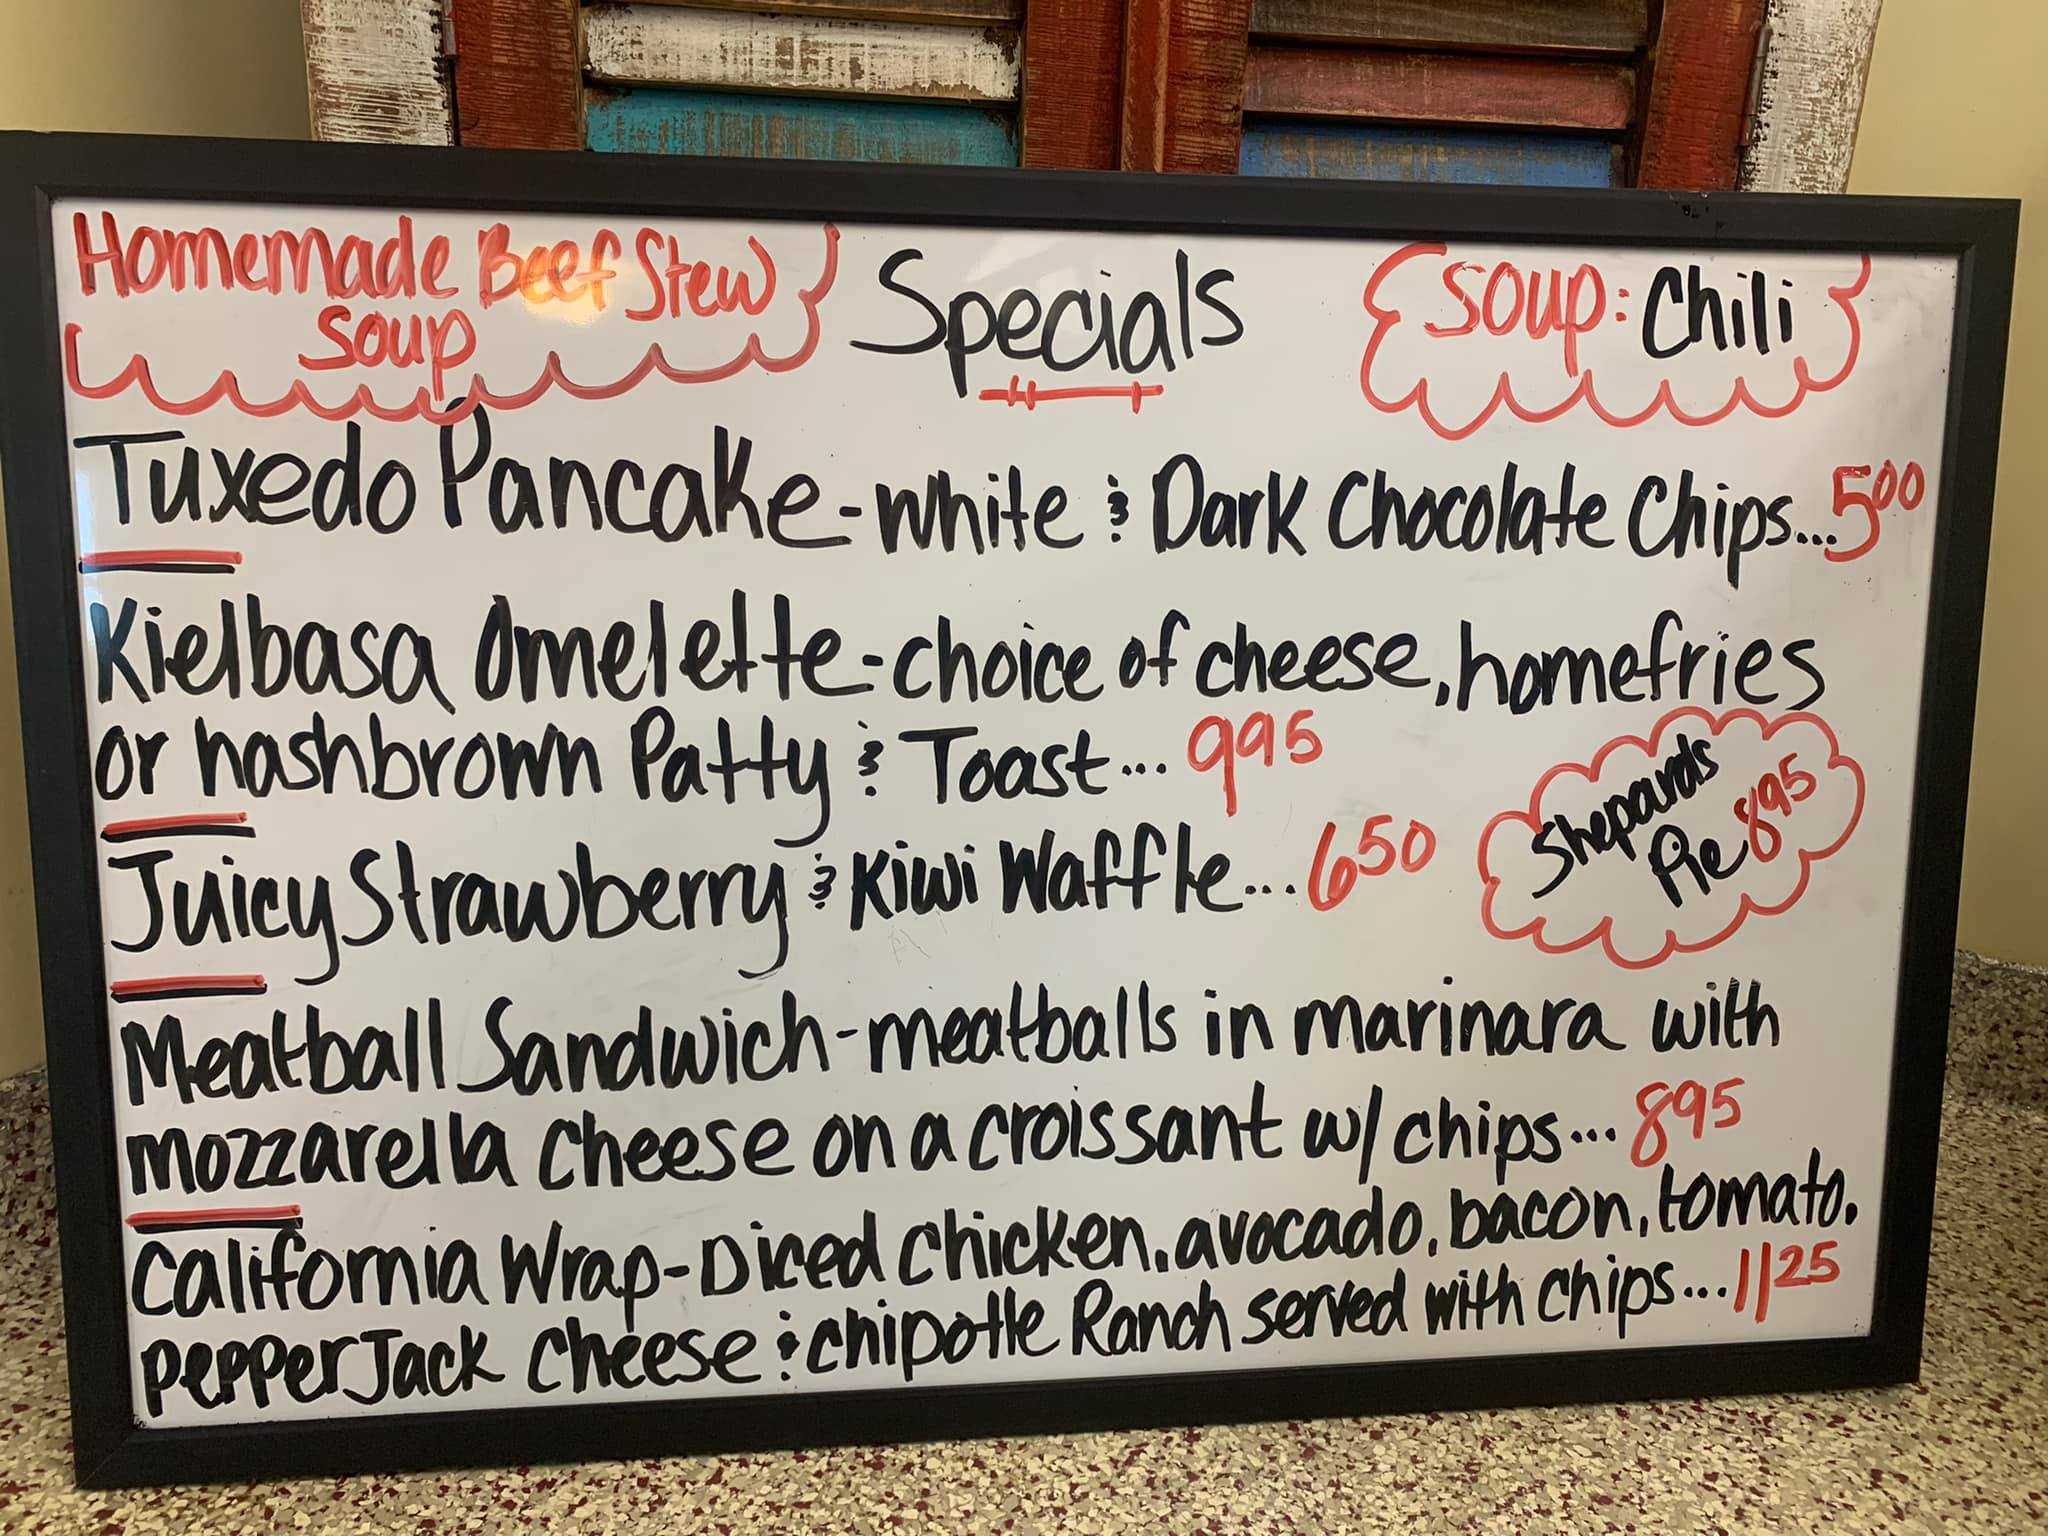 Homemade Beef Stew
Soup
Specials
Soup: Chili
Tuxedo Pancake - White & Dark Chocolate Chips... 500
Kielbasa Omelette - choice of cheese, homefries
or hashbrown Patty & Toast... 995
Shepards
Pie 895
Juicy Strawberry & Kiwi Waffle... 650
Meatball Sandwich - meatballs in marinara with
mozzarella cheese on a croissant w/ chips... 895
California Wrap - Diced chicken, avocado, bacon, tomato,
pepperJack cheese & chipotle Ranch served with chips... 1125